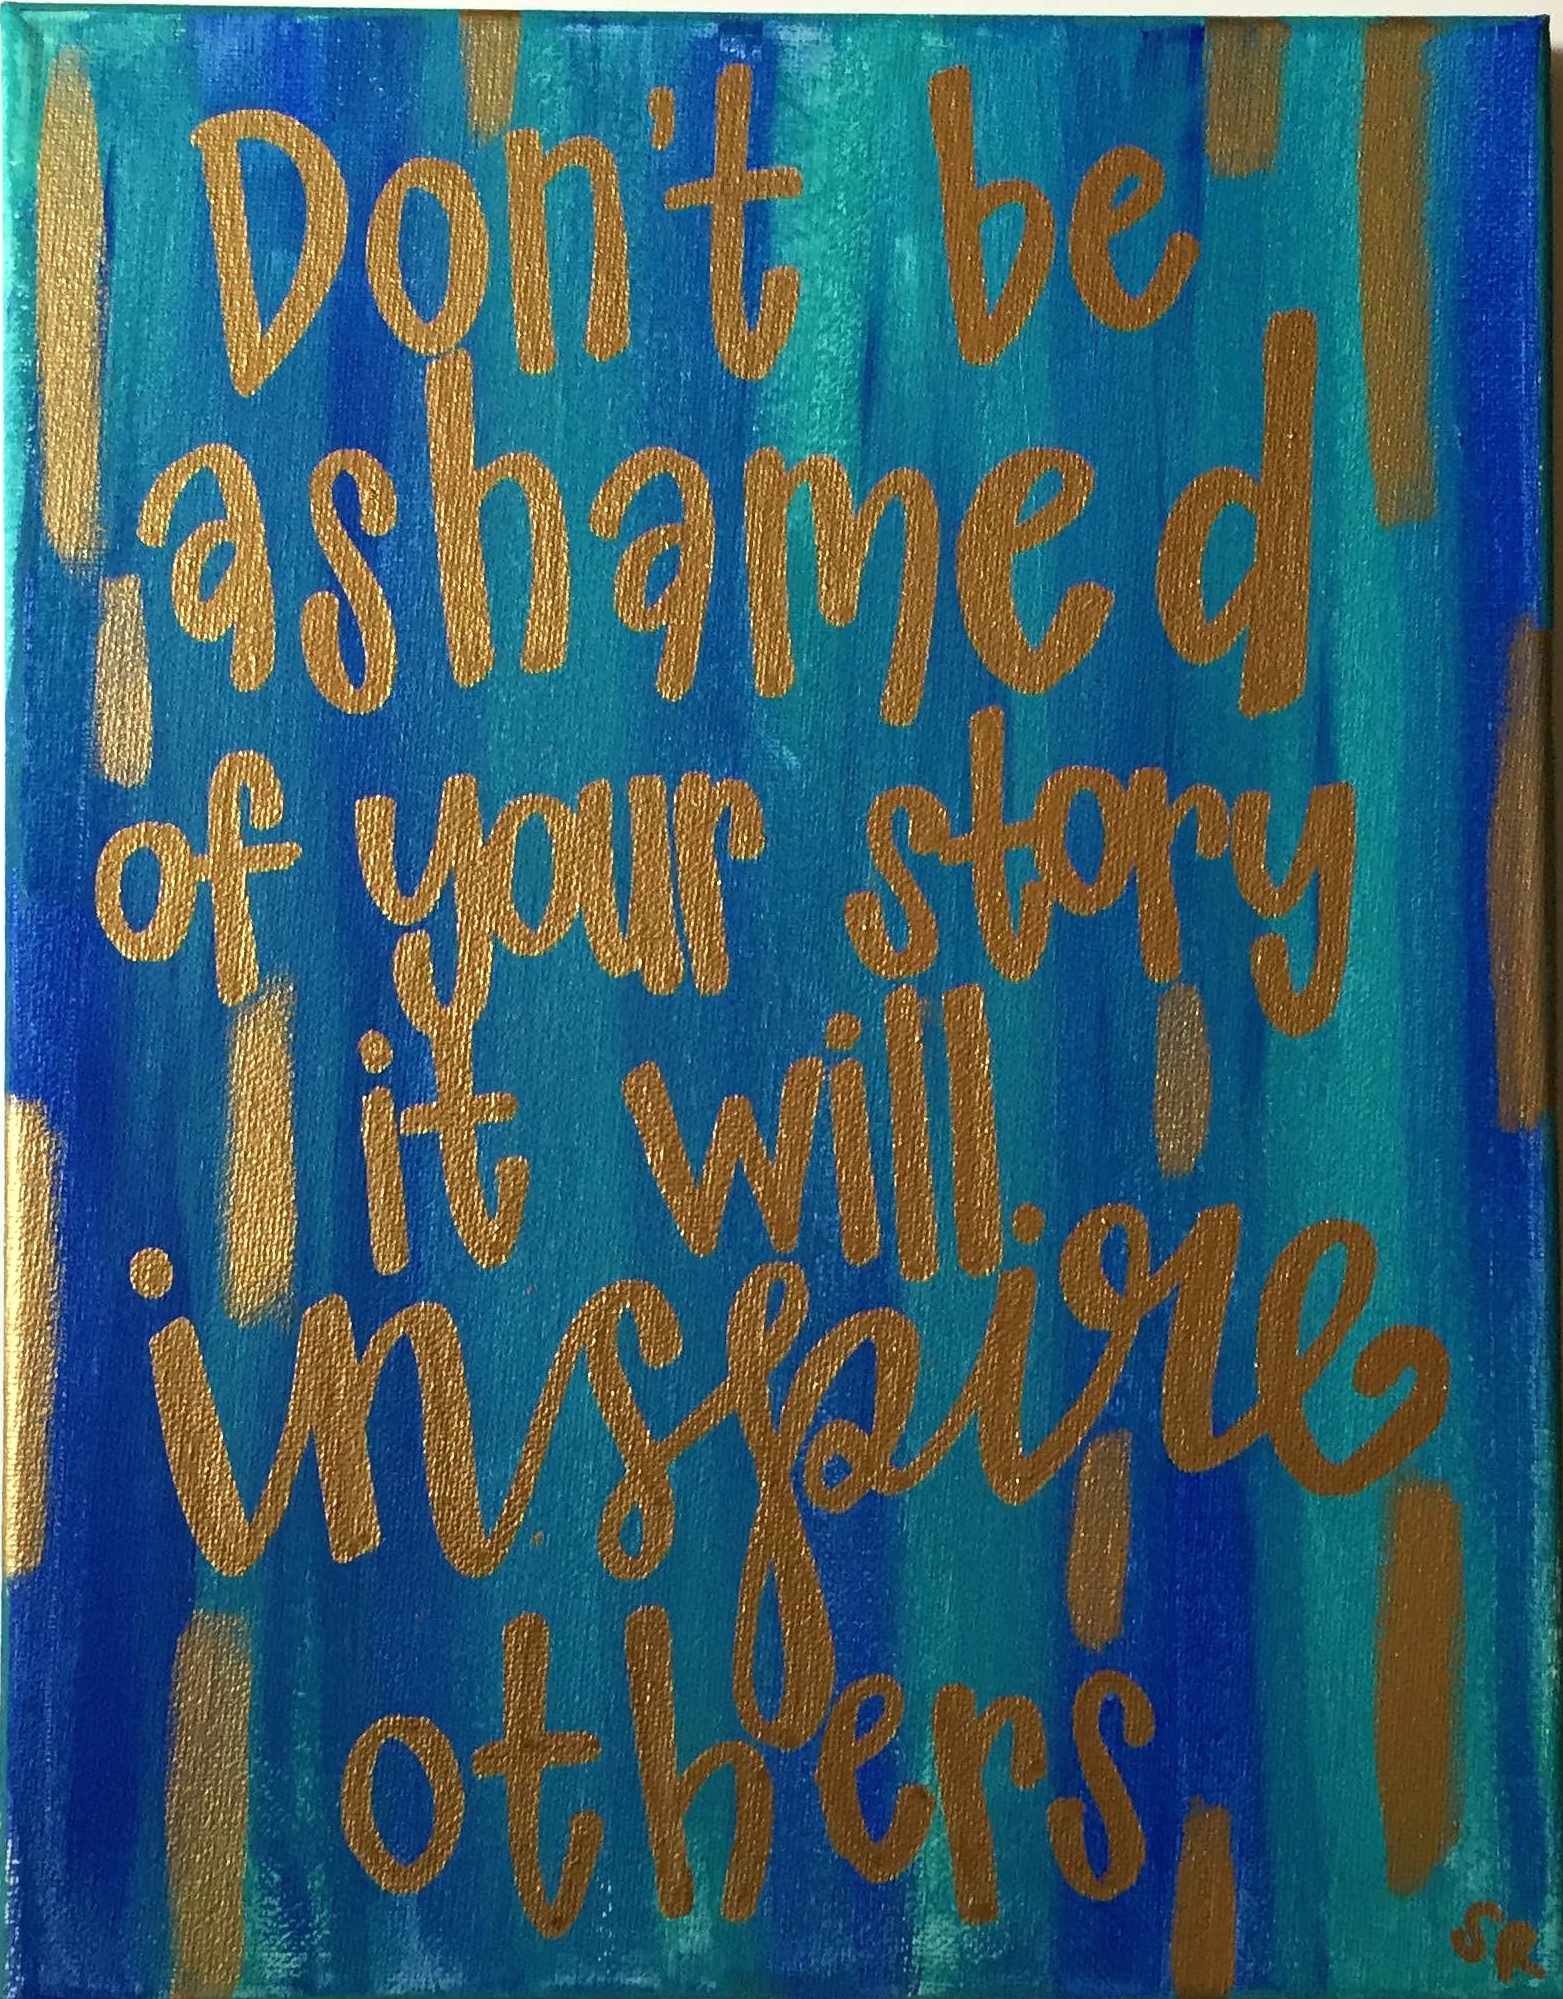 Don't be
ashamed
of your story
it will
inspire
others
SR